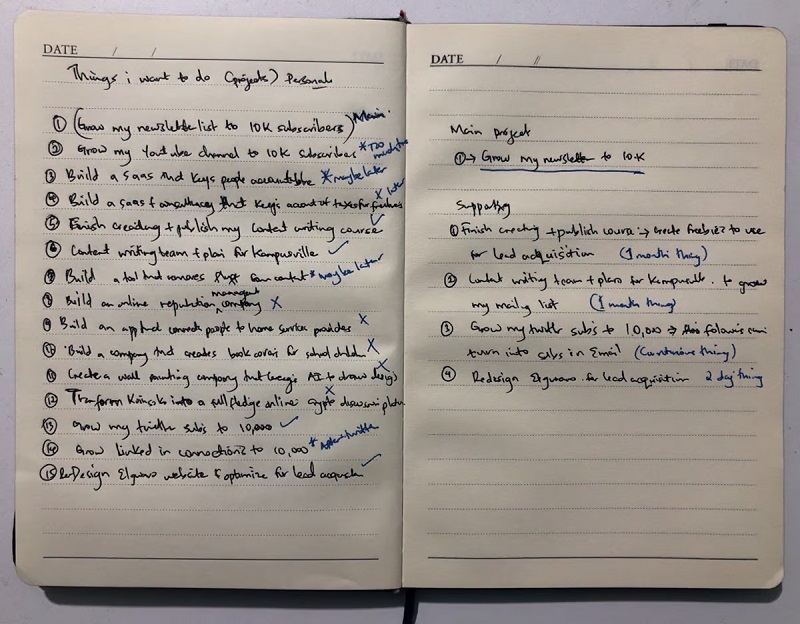 DATE / /
Things i want to do (projects) Personal
① (Grow my newsletter list to 10K subscribers) Main.
② Grow my Youtube channel to 10K subscribers * Too
③ Build a Saas that keeps people accountable * maybe later
④ Build a Saas for that keeps account of taxes for freelancers * later
⑤ Finish creating + publish my content writing course ✓
⑥ Content writing team + plan for Kampusville ✓
Build a tool that removes from content * maybe later
Build an online reputation management company X
Build an app that connects people to home service providers X
Build a company that creates book covers for school children X
Create a wall painting company that uses AI to draw designs X
⑫ Transform into a full fledge online crypto platform X
⑬ Grow my twitter subs to 10,000 ✓
⑭ Grow linked in connections to 10,000 * After twitter
⑮ ReDesign Elguoro website & optimize for lead acquisition ✓
DATE / //
Main project
①→ Grow my newsletter to 10K
Supporting
① Finish creating + publish course → create freebies to use
for lead acquisition (1 month thing)
② Content writing team + plans for Kampusville. to grow
my mailing list (1 month thing)
③ Grow my twitter subs to 10,000 → this followers can
turn into subs in Email (Continuous thing)
④ Redesign Elguoro for lead acquisition 2 day thing